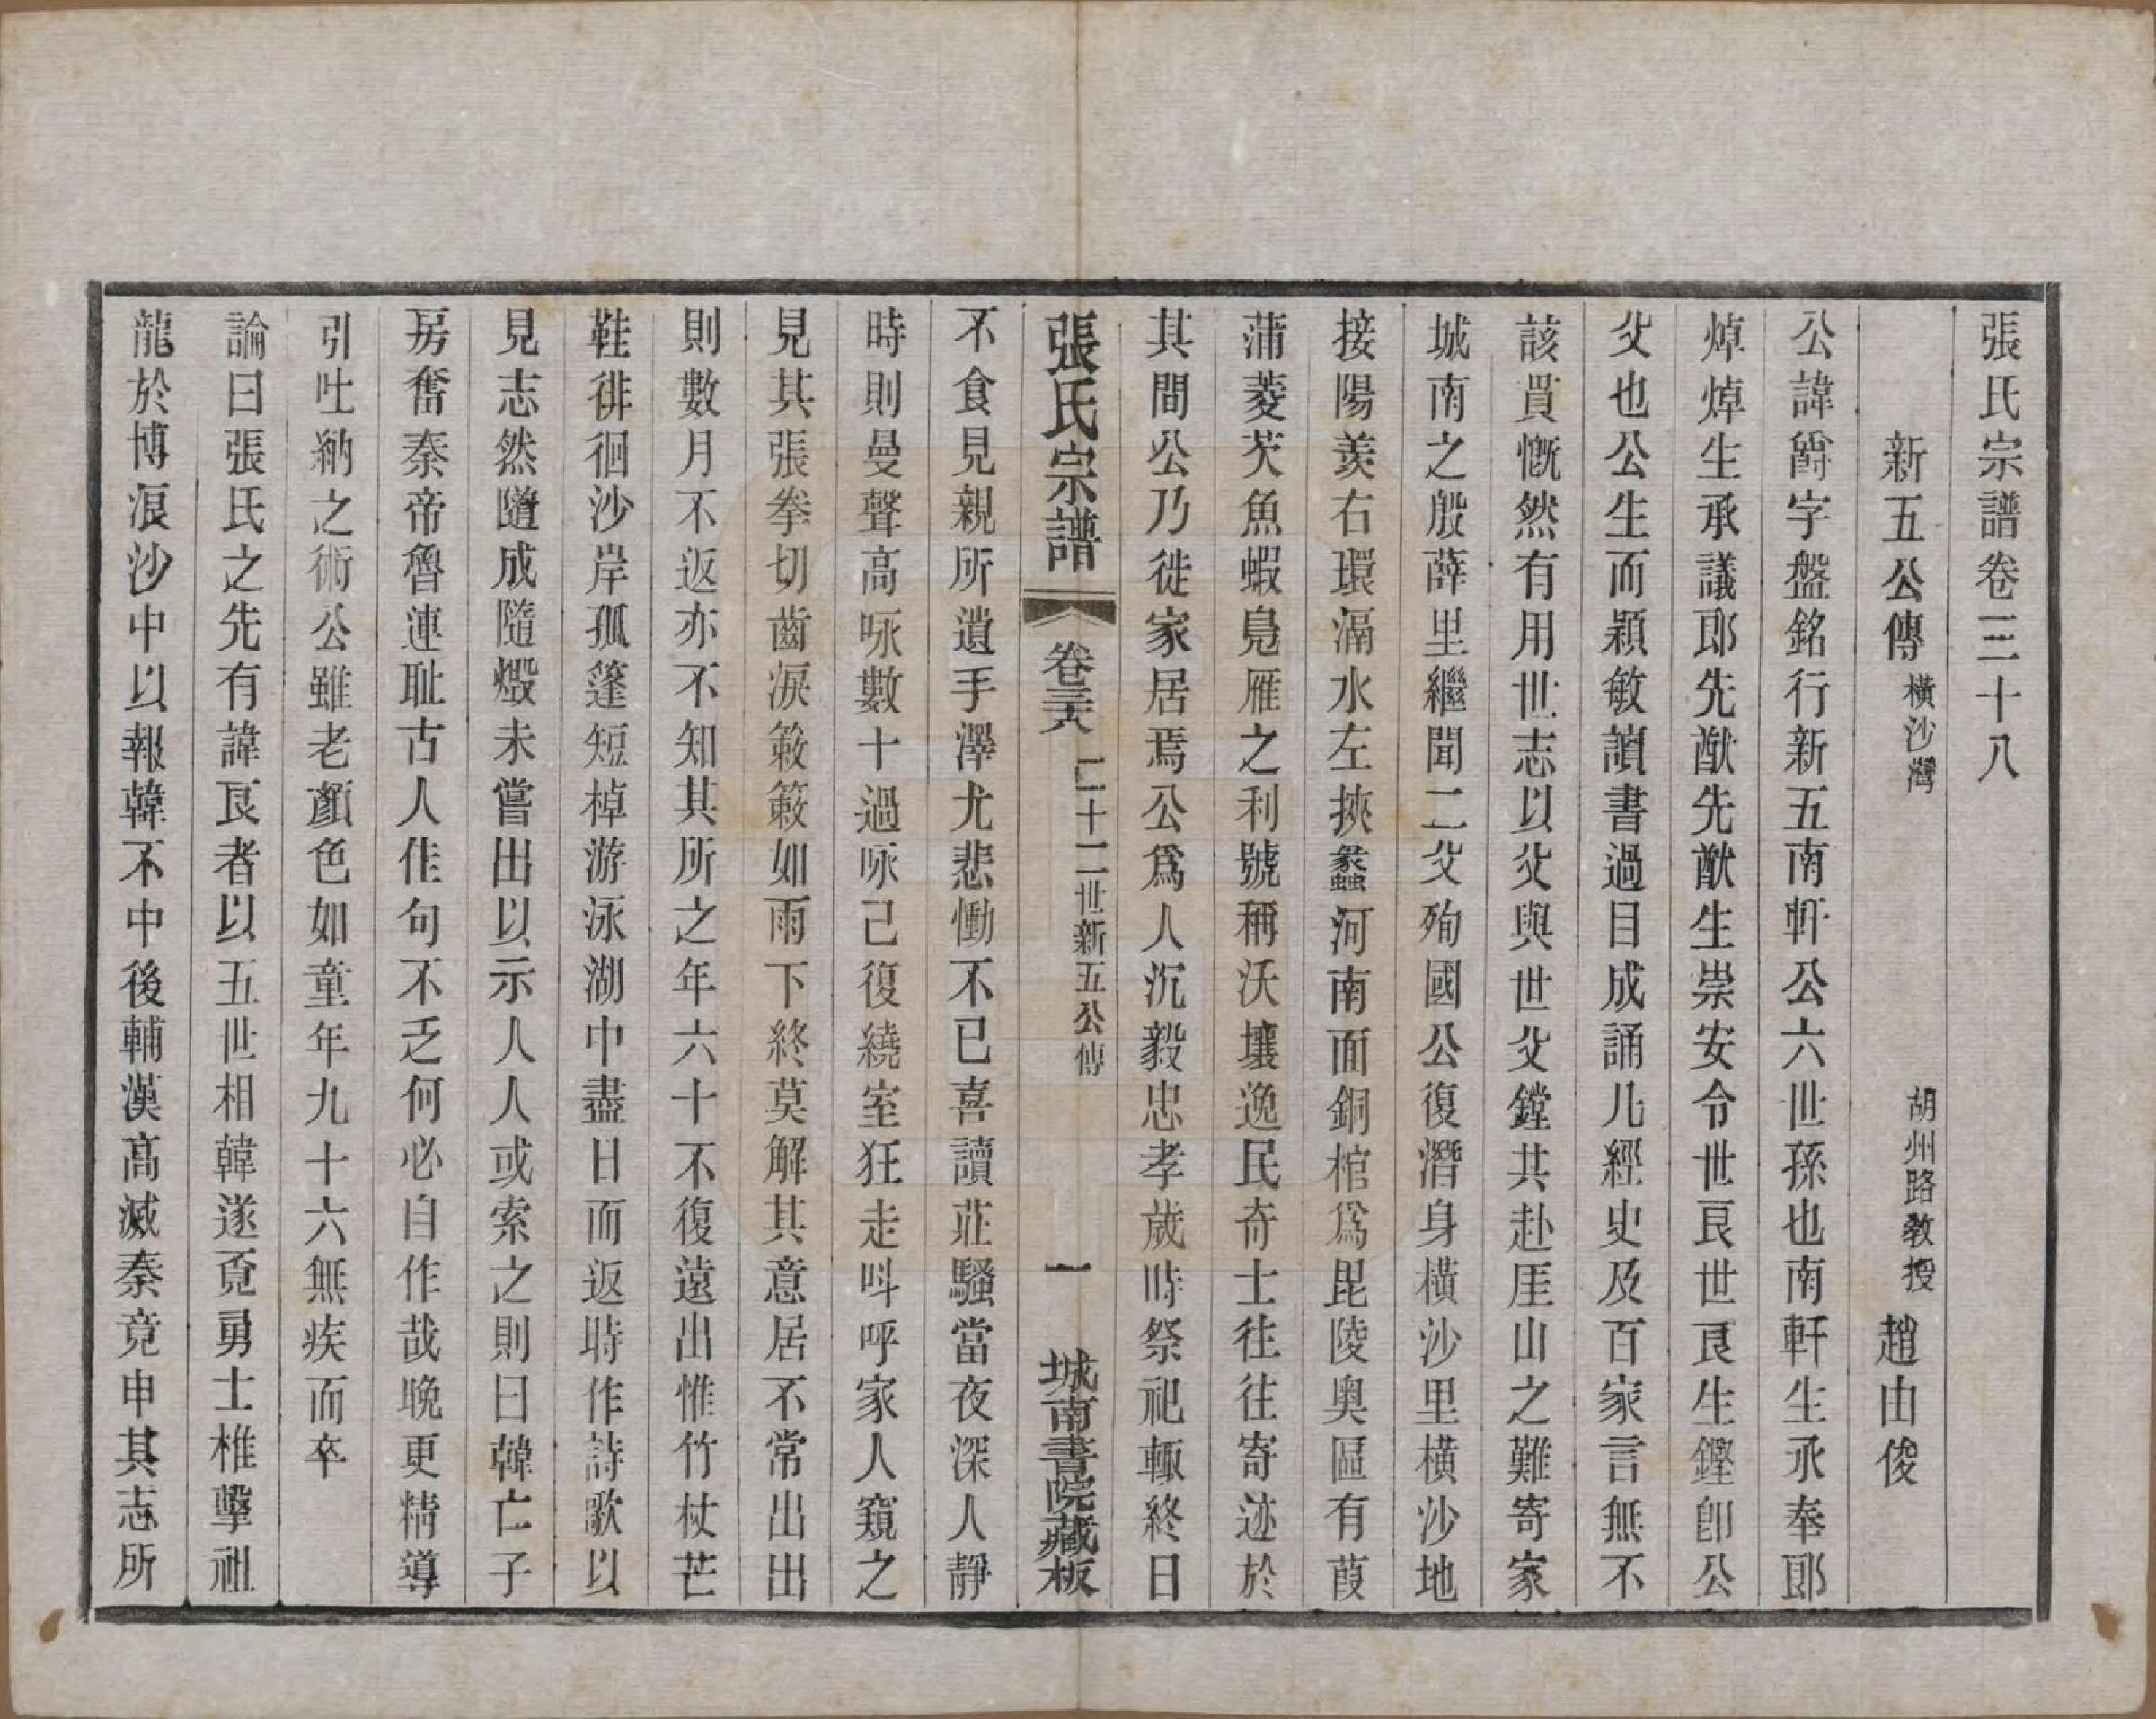 張氏宗譜卷三十八
新五公傳 橫沙灣 胡州路教授 趙由俊
公諱爵字盤銘行新五南軒公六世孫也南軒生承奉郎
焯焯生承議郎先猷先猷生崇安令世良世良生鏗卽公
父也公生而穎敏讀書過目成誦凡經史及百家言無不
該貫慨然有用世志以父與世父鏜共赴厓山之難寄家
城南之殷薛里繼聞二父殉國公復潛身橫沙里橫沙地
接陽羨右環滆水左挾蠡河南面銅棺爲毘陵奧區有葭
蒲菱芡魚蝦鳧雁之利號稱沃壤逸民奇士往往寄迹於
其間公乃徙家居焉公爲人沉毅忠孝歲時祭祀輙終日
張氏宗譜 卷三十八 二十二世新五公傳 一 城南書院藏板
不食見親所遺手澤尤悲慟不已喜讀莊騷當夜深人靜
時則曼聲高咏數十過咏己復繞室狂走叫呼家人窺之
見其張拳切齒淚簌簌如雨下終莫解其意居不常出出
則數月不返亦不知其所之年六十不復遠出惟竹杖芒
鞋徘徊沙岸孤篷短棹游泳湖中盡日而返時作詩歌以
見志然隨成隨燬未嘗出以示人人或索之則曰韓亡子
房奮秦帝魯連耻古人佳句不乏何必自作哉晚更精導
引吐納之術公雖老顏色如童年九十六無疾而卒
論曰張氏之先有諱良者以五世相韓遂覓勇士椎擊祖
龍於博浪沙中以報韓不中後輔漢高滅秦竟申其志所